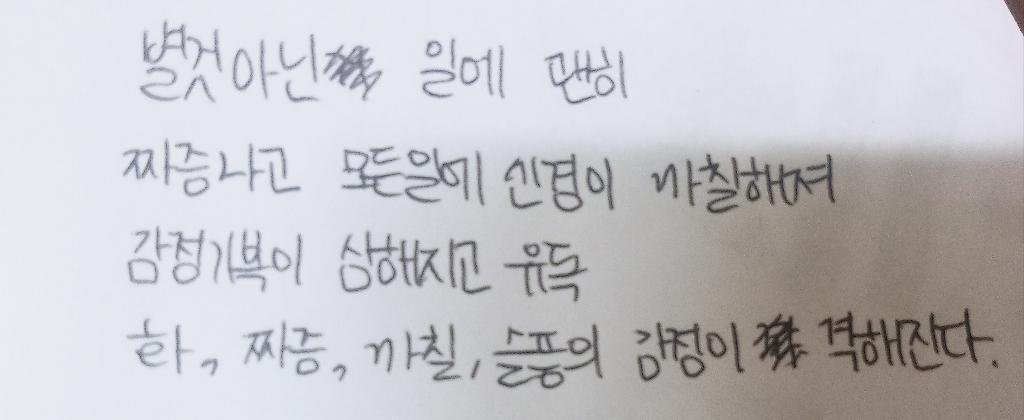 별것아닌 일에 괜히
짜증나고 모든일에 신경이 까칠해져
감정기복이 심해지고 유독
화, 짜증, 까칠, 슬픔의 감정이 격해진다.